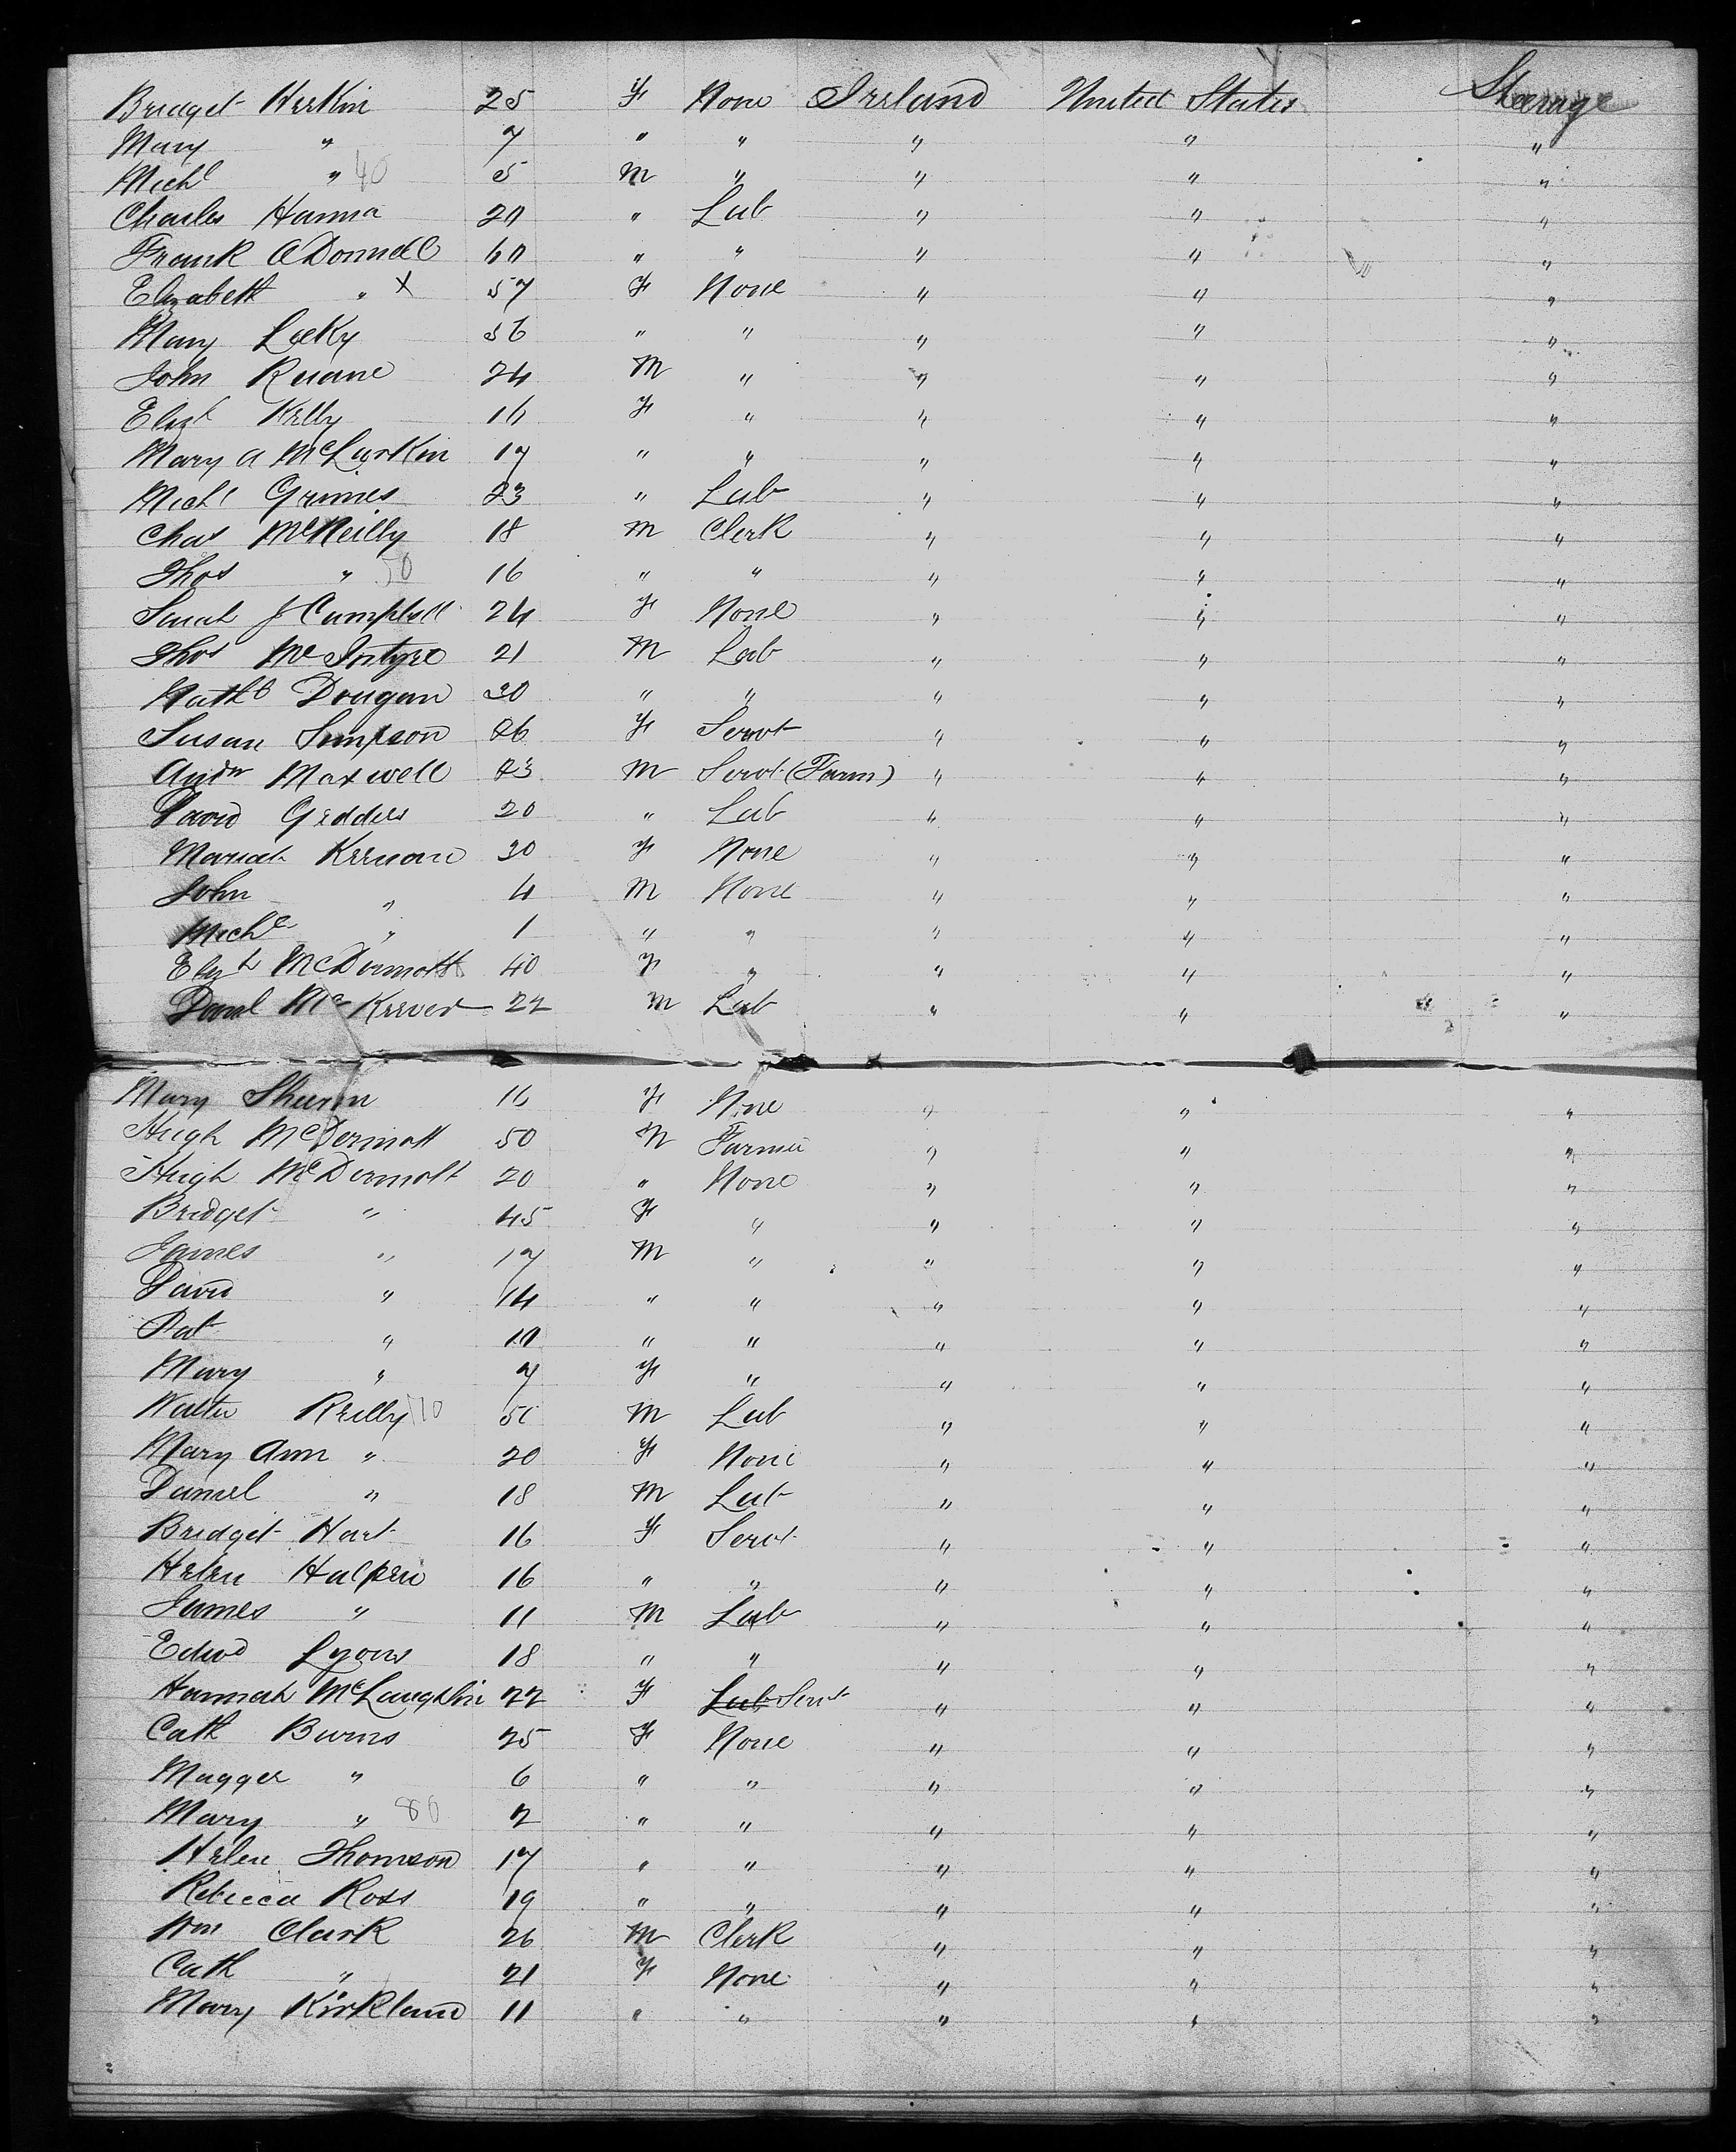 Bridget Herkin 25 F None Ireland United States Steerage
Mary " 7 " " " " "
Michl " 40 5 m " " " "
Charles Hanna 20 " Lab " " "
Frank O'Donnell 60 " " " " "
Elizabeth " X 57 F None " " "
Mary Leeky 56 " " " " "
John Ruane 24 M " " " "
Elizh Kelly 16 F " " " "
Mary A McLarkin 17 " " " " "
Michl Grimes 23 " Lab " " "
Chas McNeilly 18 m Clerk " " "
Thos " 50 16 " " " " "
Sarah J Campbell 24 F None " " "
Thos McIntyre 21 M Lab " " "
Nathl Dougan 30 " " " " "
Susan Simpson 26 F Servt " " "
Andw Maxwell 23 M Servt (Farm) " " "
David Geddes 20 " Lab " " "
Mariah Keenan 30 F None " " "
John " 4 M None " " "
Michl " 1 " " " " "
Elizh McDermott 40 F " " " "
Danl McKeever 22 M Lab " " "
Mary 16 F None " " "
Hugh McDermott 50 M Farmer " " "
Hugh McDermott 20 " None " " "
Bridget " 45 F " " " "
James " 17 M " " " "
David " 14 " " " " "
Pat " 10 " " " " "
Mary " 7 F " " " "
Walter Reilly 50 M Lab " " "
Mary Ann " 20 F None " " "
Daniel " 18 M Lab " " "
Bridget Hart 16 F Servt " " "
Helen Halpen 16 " " " " "
James " 11 M Lab " " "
Edwd Lyons 18 " " " " "
Hannah McLaughlin 22 F Lab Servt " " "
Cath Burns 25 F None " " "
Magger " 6 " " " " "
Mary " 80 2 " " " " "
Helen Thomson 17 " " " " "
Rebecca Ross 19 " " " " "
Wm Clark 26 M Clerk " " "
Cath " 21 F None " " "
Mary Kirkland 11 " " " " "